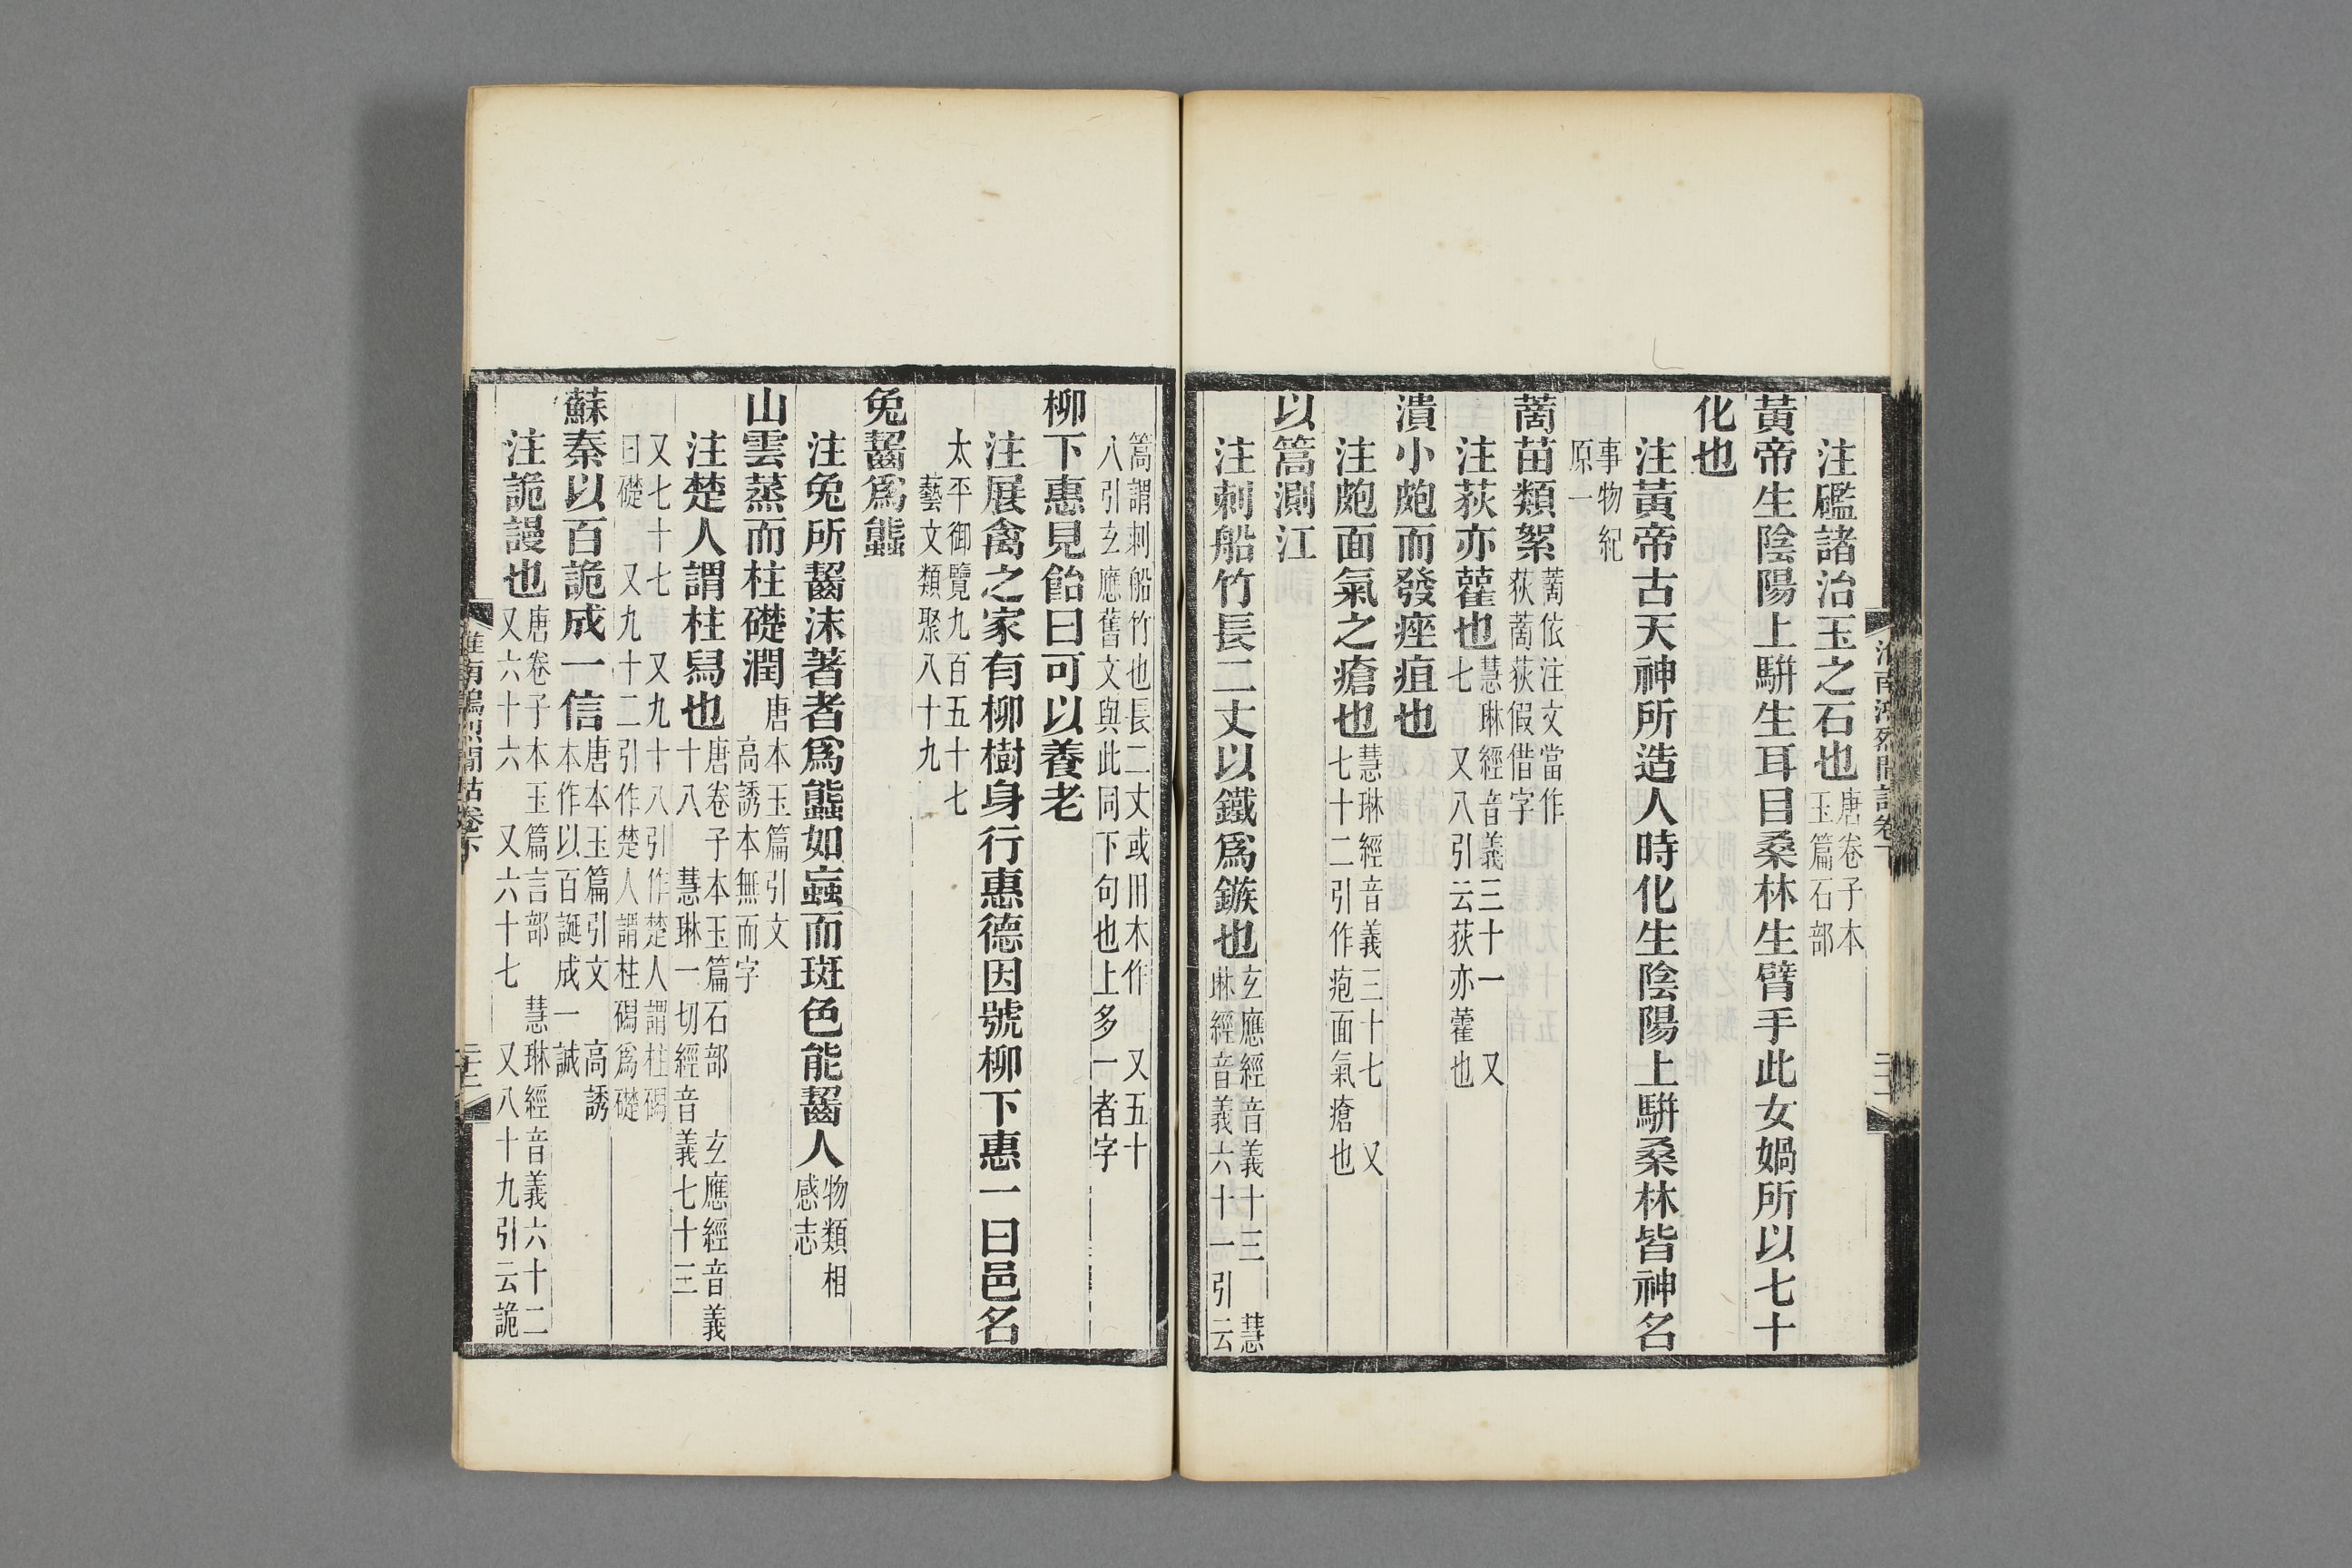 淮南鴻烈閒詁卷下
注礛諸治玉之石也 唐卷子本
玉篇石部
黃帝生陰陽上駢生耳目桑林生臂手此女媧所以七十
化也
注黃帝古天神所造人時化生陰陽上駢桑林皆神名
事物紀
原一
蔐苗類絮 蔐依注文當作
荻蔐荻假借字
注荻亦雚也 慧琳經音義三十一 又
七 又八引云荻亦雚也
潰小皰而發痤疽也
注皰面氣之瘡也 慧琳經音義三十七 又
七十二引作疱面氣瘡也
以篙測江
注刺船竹長二丈以鐵爲鏃也 玄應經音義十三 慧
琳經音義六十一引云
篙謂刺船竹也長二丈或㫖木作 又五十
八引玄應舊文與此同下句也上多一者字
柳下惠見飴曰可以養老
注展禽之家有柳樹身行惠德因號柳下惠一曰邑名
太平御覽九百五十七
藝文類聚八十九
兔齧爲螚
注兔所齧沫著者爲螚如蝱而斑色能齧人 物類相
感志
山雲蒸而柱礎潤 唐本玉篇引文
高誘本無而字
注楚人謂柱舄也 唐卷子本玉篇石部 玄應經音義
十八 慧琳一切經音義七十三
又七十七 又九十八引作楚人謂柱碣
曰礎 又九十二引作楚人謂柱碣爲礎
蘇秦以百詭成一信 唐本玉篇引文 高誘
本作以百誕成一誠
注詭謾也 唐卷子本玉篇言部 慧琳經音義六十二
又六十六 又六十七 又八十九引云詭
淮南鴻烈閒詁卷下
二十二